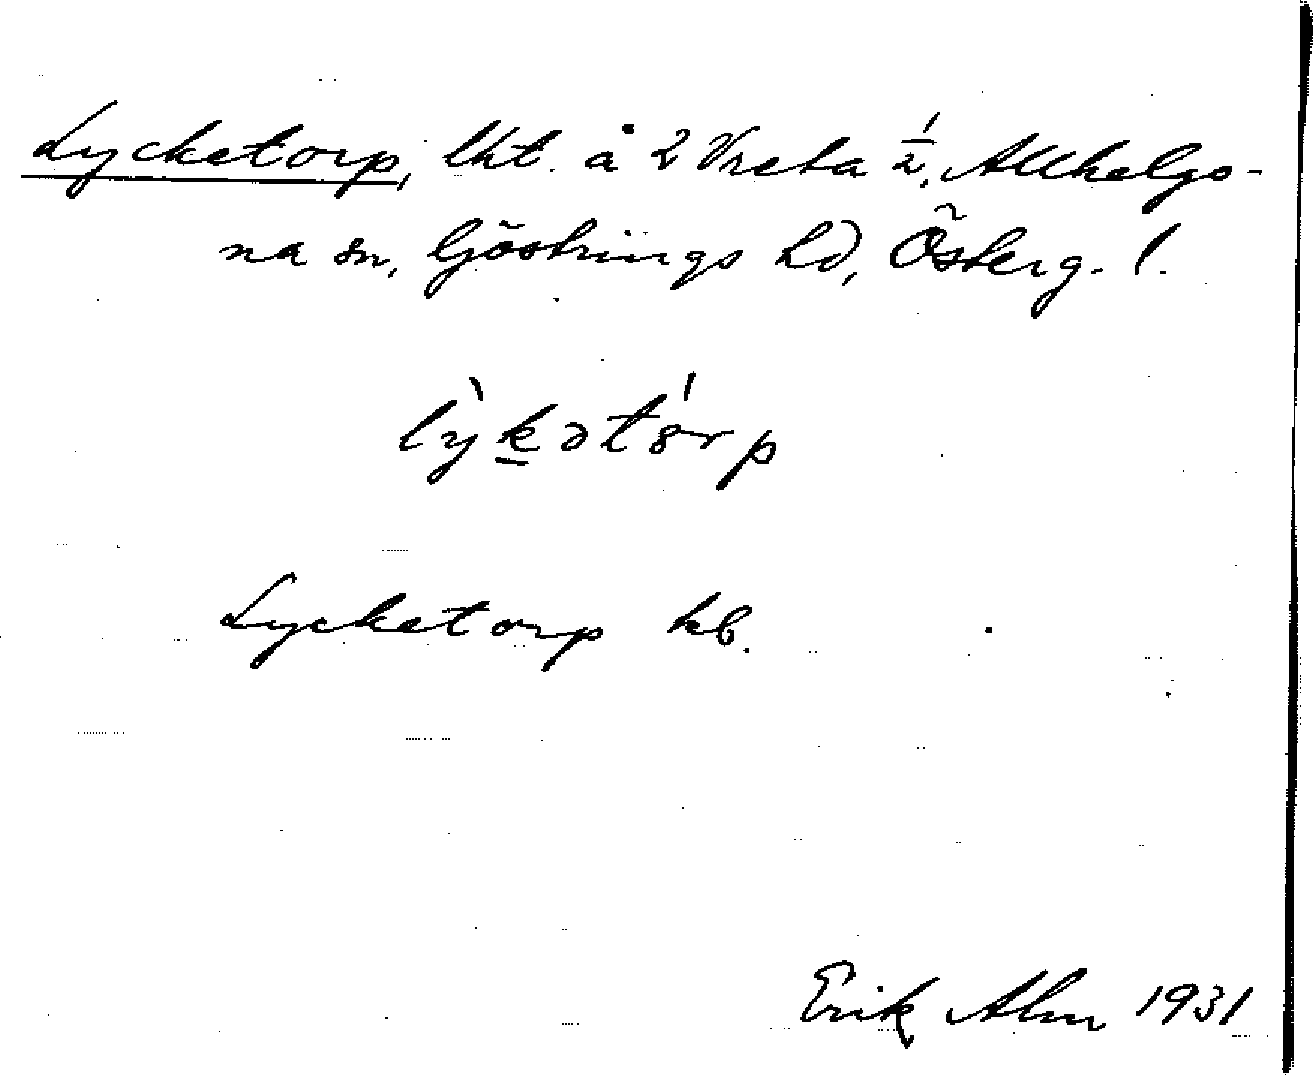 Lycketorp, lht. å 2 Vreta ½, Allhelgo-
na sn, Göstrings hd, Österg. l.
lỳk̲ətór̀p
Lycketorp kb.
Erik Alm 1931